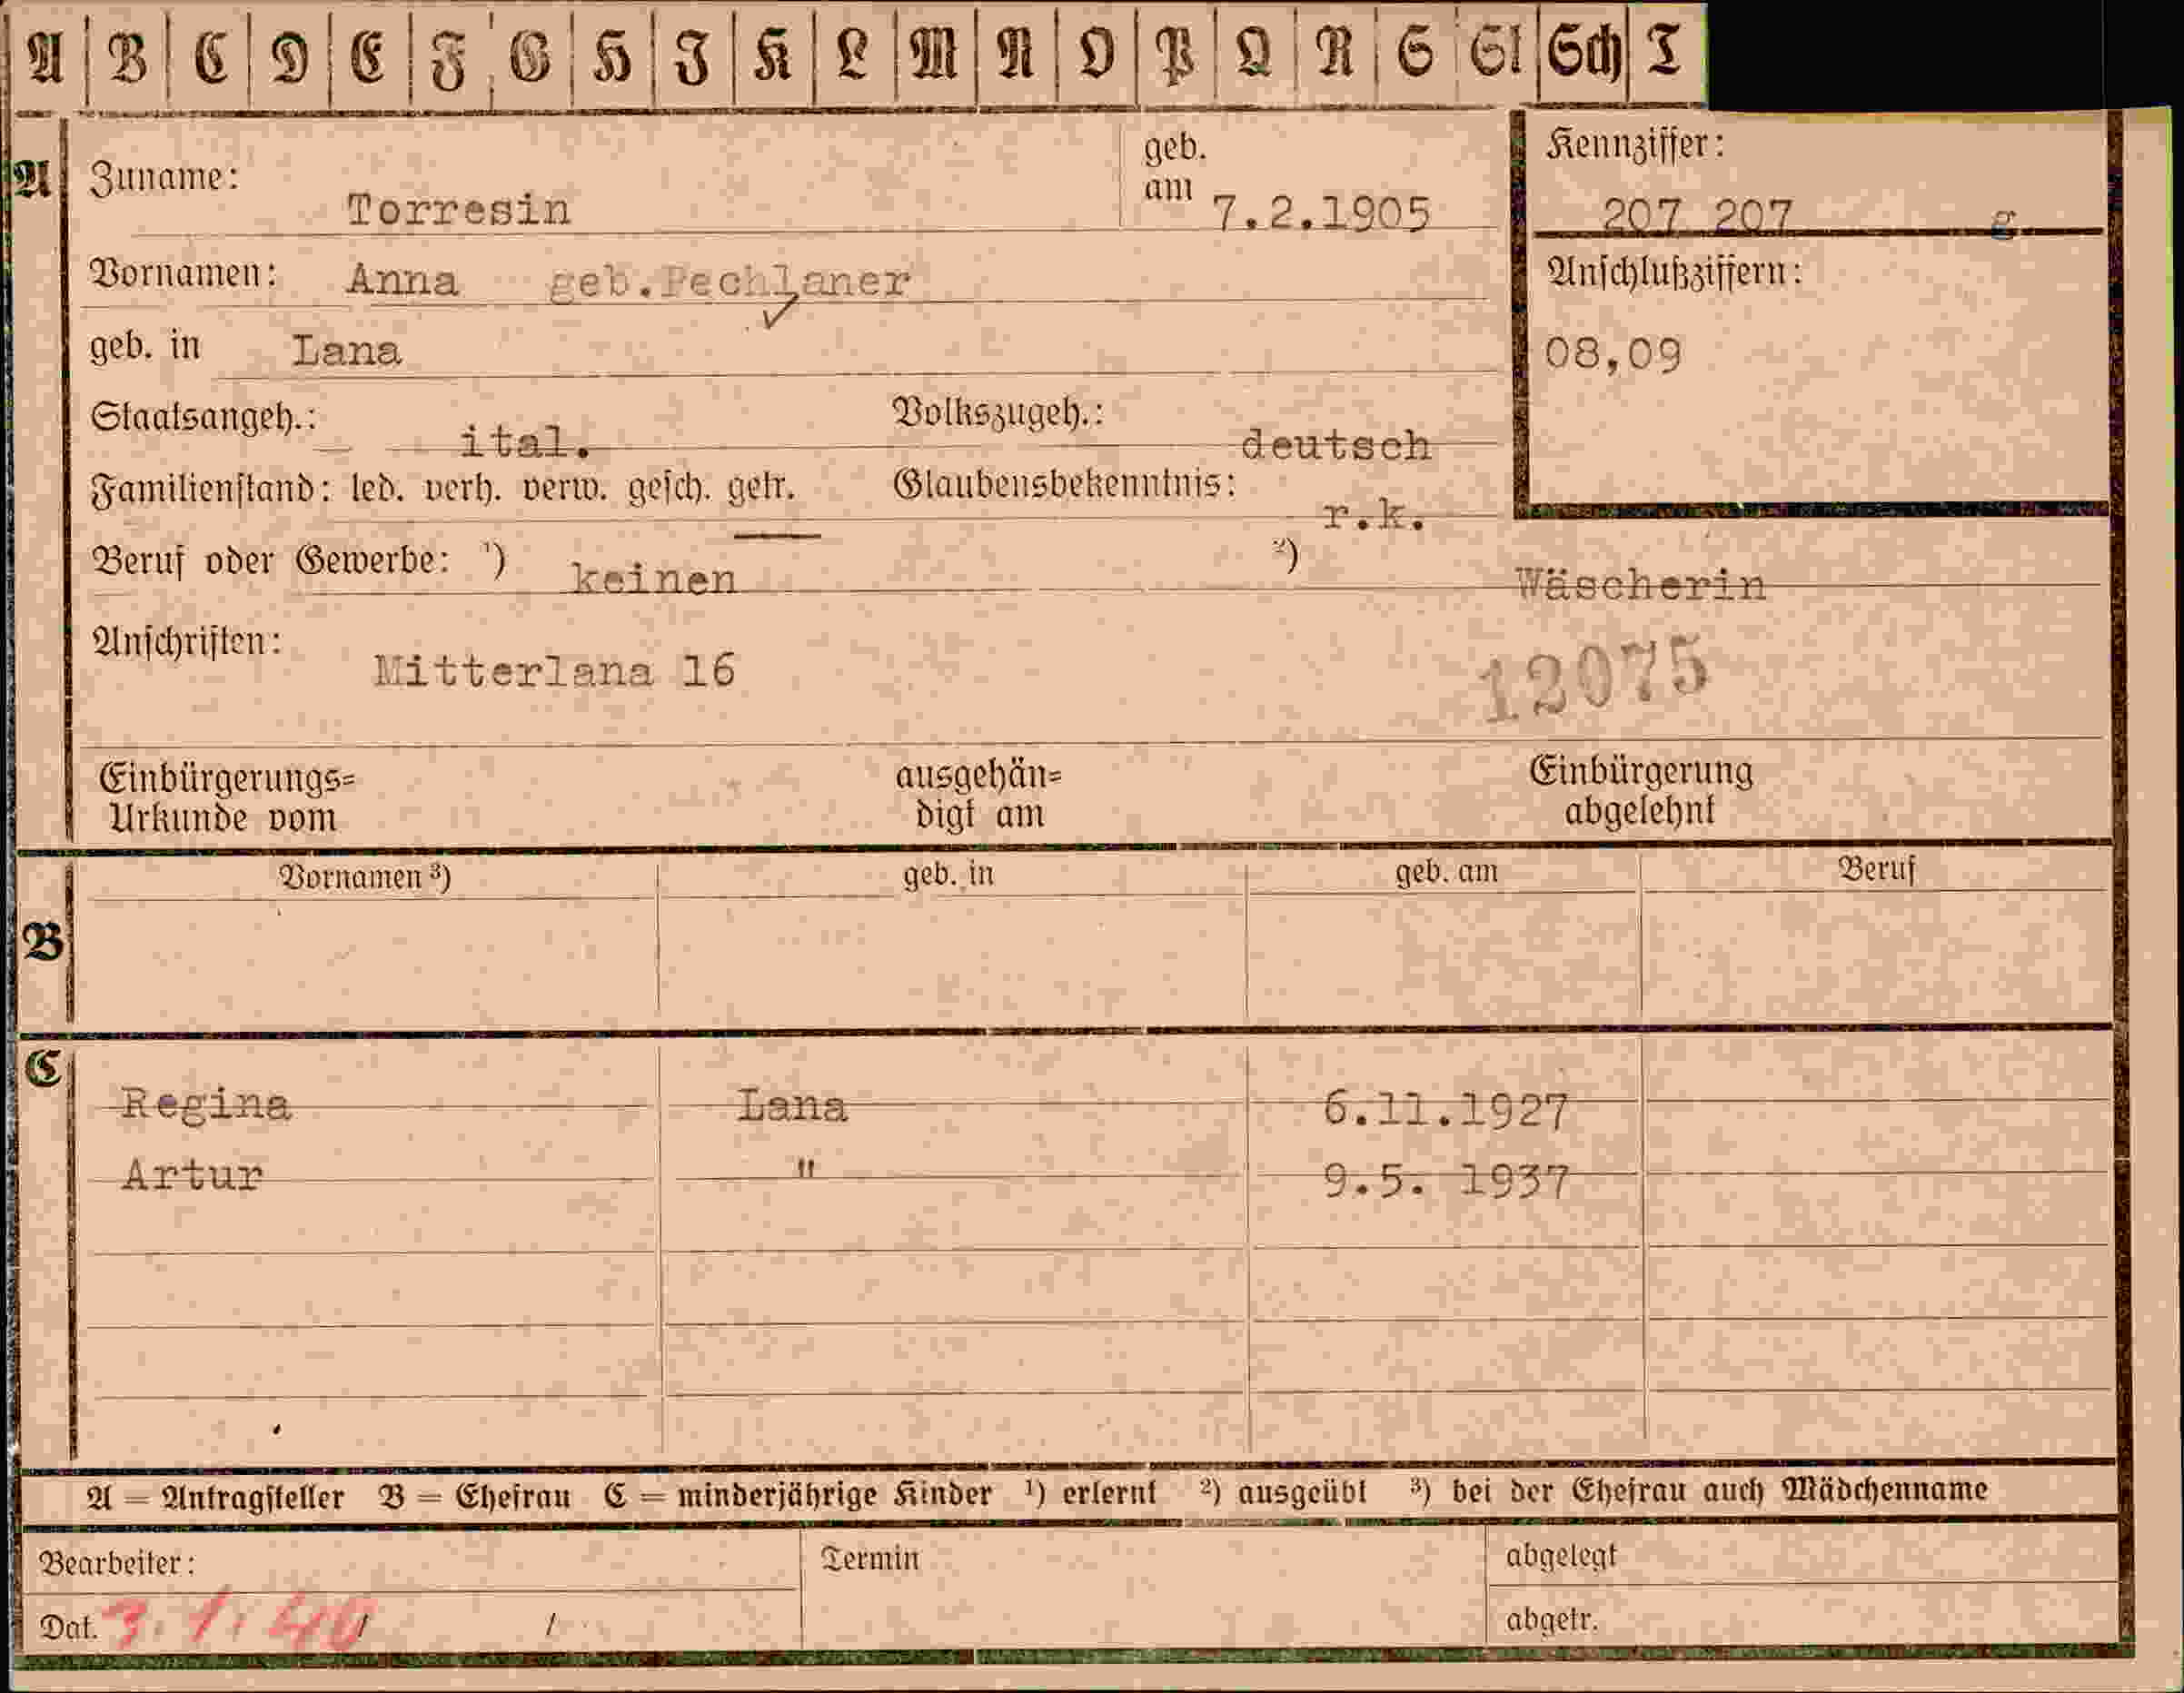 A B C D E F G H I K L M N O P Q R S St Sch T
A
Zuname: Torresin geb. am 7.2.1905
Kennziffer: 207 207 g
Vornamen: Anna geb.Pechlaner
Anschlußziffern:
geb. in Lana
08,09
Staatsangeh.: ital. Volkszugeh.: deutsch
Familienstand: led. verh. verw. gesch. getr. Glaubensbekenntnis: r.k.
Beruf oder Gewerbe: ¹) keinen ²) Wäscherin
Anschriften: Mitterlana 16
12075
Einbürgerungs=
Urkunde vom
ausgehän=
digt am
Einbürgerung
abgelehnt
B
Vornamen ³) geb. in geb. am Beruf
C
Regina Lana 6.11.1927
Artur " 9.5. 1937
A = Antragsteller B = Ehefrau C = minderjährige Kinder ¹) erlernt ²) ausgeübt ³) bei der Ehefrau auch Mädchenname
Bearbeiter: Termin abgelegt
Dat. 3.1.40 / / abgetr.